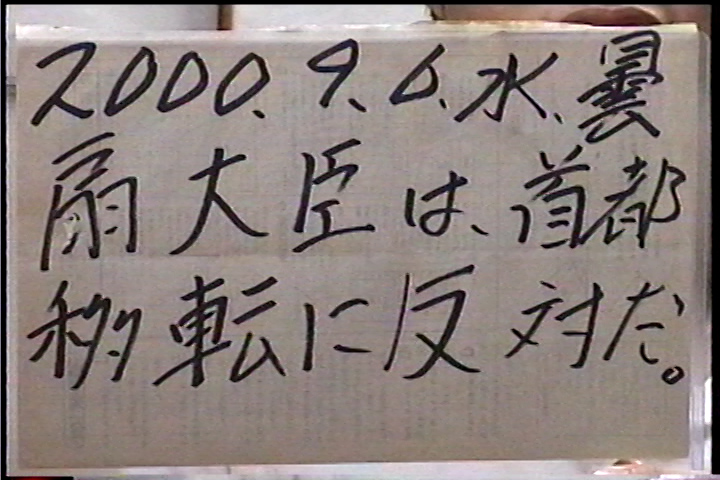 2000.9.6.水.曇
扇大臣は、首都
移転に反対だ。